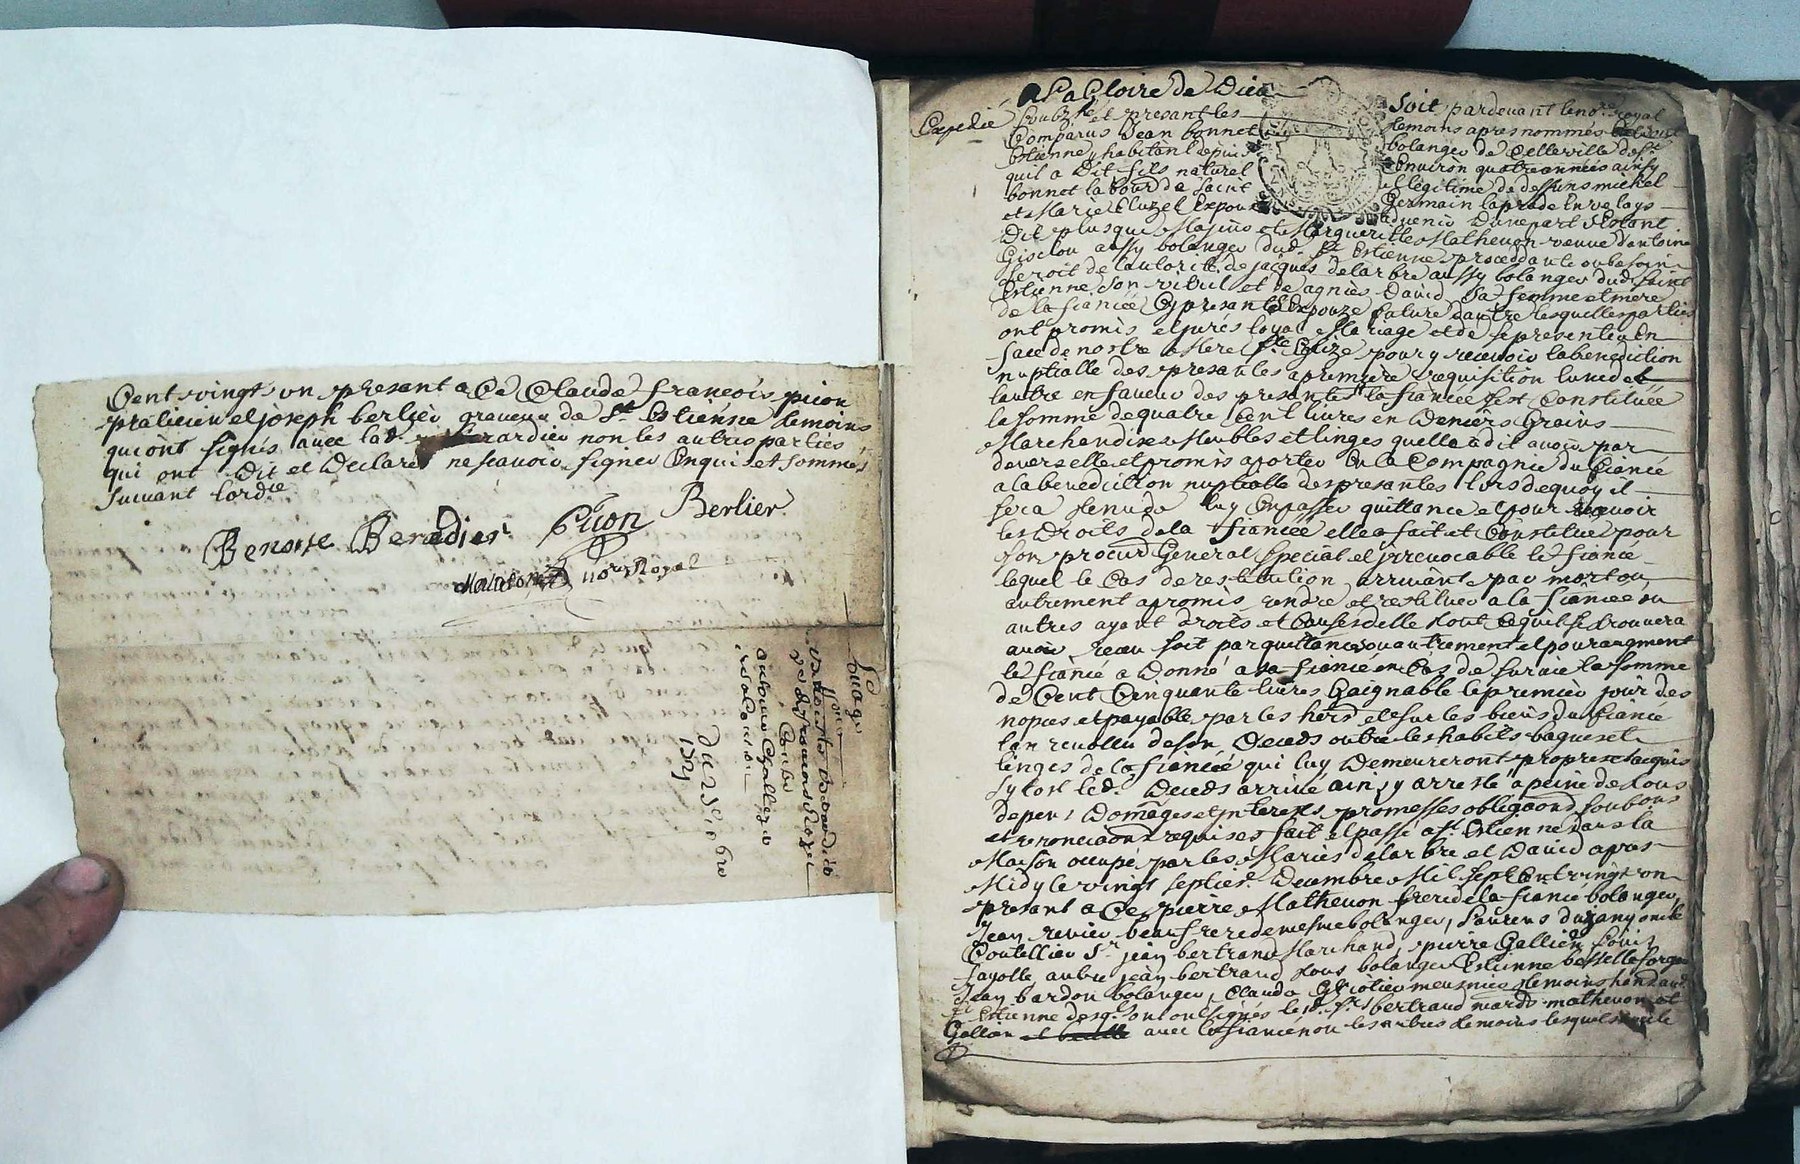 Cent vingt un presant a Ce Claude françois pion
praticien et joseph berlier graveur de St Estienne temoins
qui ont signés avec lad. non les autres parties
qui ont Dit et Declaré ne scavoir signer Enquis et sommés
suivant lordce
Benoiste Berardier Pion Berlier
nore Royal
Du 25 xbre
1721
A La Gloire de Dieu
Expedié
Soubzne et presant les
Comparus Jean bonnet
Estienne y habitant depuis
quil a Dit fils naturel
bonnet labourd de Saint
et Marie Cluzel Expoux
Soit pardevant le nore royal
temoins apres nommés
bolanger de Celle ville de St
Environ quatre années ainsy
et légitime de deffuns michel
Germain laprade En velays
advenir Dune part Et
Dit plus que Majeur et Margueritte Mathevon vefve dantoine
Giselon aussy bolanger dud. St Estienne procedant ou besoin
seroit de lautorité de jacques delarbre aussy bolanger dud Saint
Estienne son vitril et de agniès David Sa femme et mere
de la fiancée Cy presants Expouze future dautre lesquelles parties
ont promis et jurés loyal Mariage et de se presenter En
face de nostre Mere Ste Eglize pour y recevoir la benediction
nuptialle des presantes a premiere requisition lun de
lautre en faveur des presantes la fiancée sest Constituée
la somme de quatre Cent livres en Deniers Grains
Marchandises Meubles et linges quelle a dit avoir par
devers elle et promis aporter En la Compagnie du fiancé
a la benediction nuptialle des presantes lors de quoy il
sera tenu de luy En passer quittance et pour recevoir
les Droits de la fiancée elle a fait et Constitué pour
son procur General special et jrrevocable le fiancé
lequel le Cas de restitution arrivant par mort ou
autrement a promis rendre et restituer a la fiancée ou
autres ayant droits et Causes delle tout Ce quil se trouvera
avoir receu soit par quittance ou autrement et pour augment
le fiancé a Donné a sa fiancée en Cas de survie la somme
de Cent Cinquante livres Gaignable le premier jour des
nopces et payable par les hers et sur les biens du fiancé
lan revollu de son Deceds outre les habits bagues et
linges de la fiancée qui luy Demeureront propres et acquis
sytost led. Deceds arrivé ainsy arresté a peine de tous
depens Domages et jnterests promesses obligaons soubons
et renonciaons requises fait et passé a St Estienne dans la
Maison occupé par les Mariés delarbre et David apres
Midy le vingt septie Decembre Mil sept Cent vingt un
presant a Ce pierre Mathevon frere de la fiancée bolanger
Jean revier beau frere de mesme bolanger, Laurens
Coutellier Sr jean bertrand Marchand, pierre Gallien Louis
fayolle autre jean bertrand tous bolanger Estienne
Jean bardon bolanger, Claude meusnier temoins
St Estienne desq. sont soussignés led. Sr bertrand mathevon et
Gallien avec la fiancé non les autres temoins lesquels